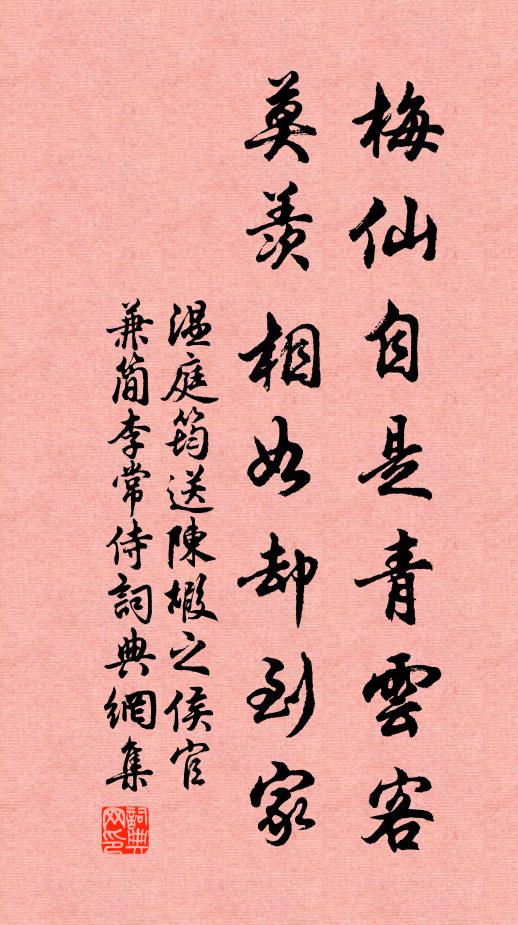 梅仙自是青雲客
莫羨相如却到家
温庭筠送陳嘏之侯官
兼簡李常侍詞典網集
詞典网印